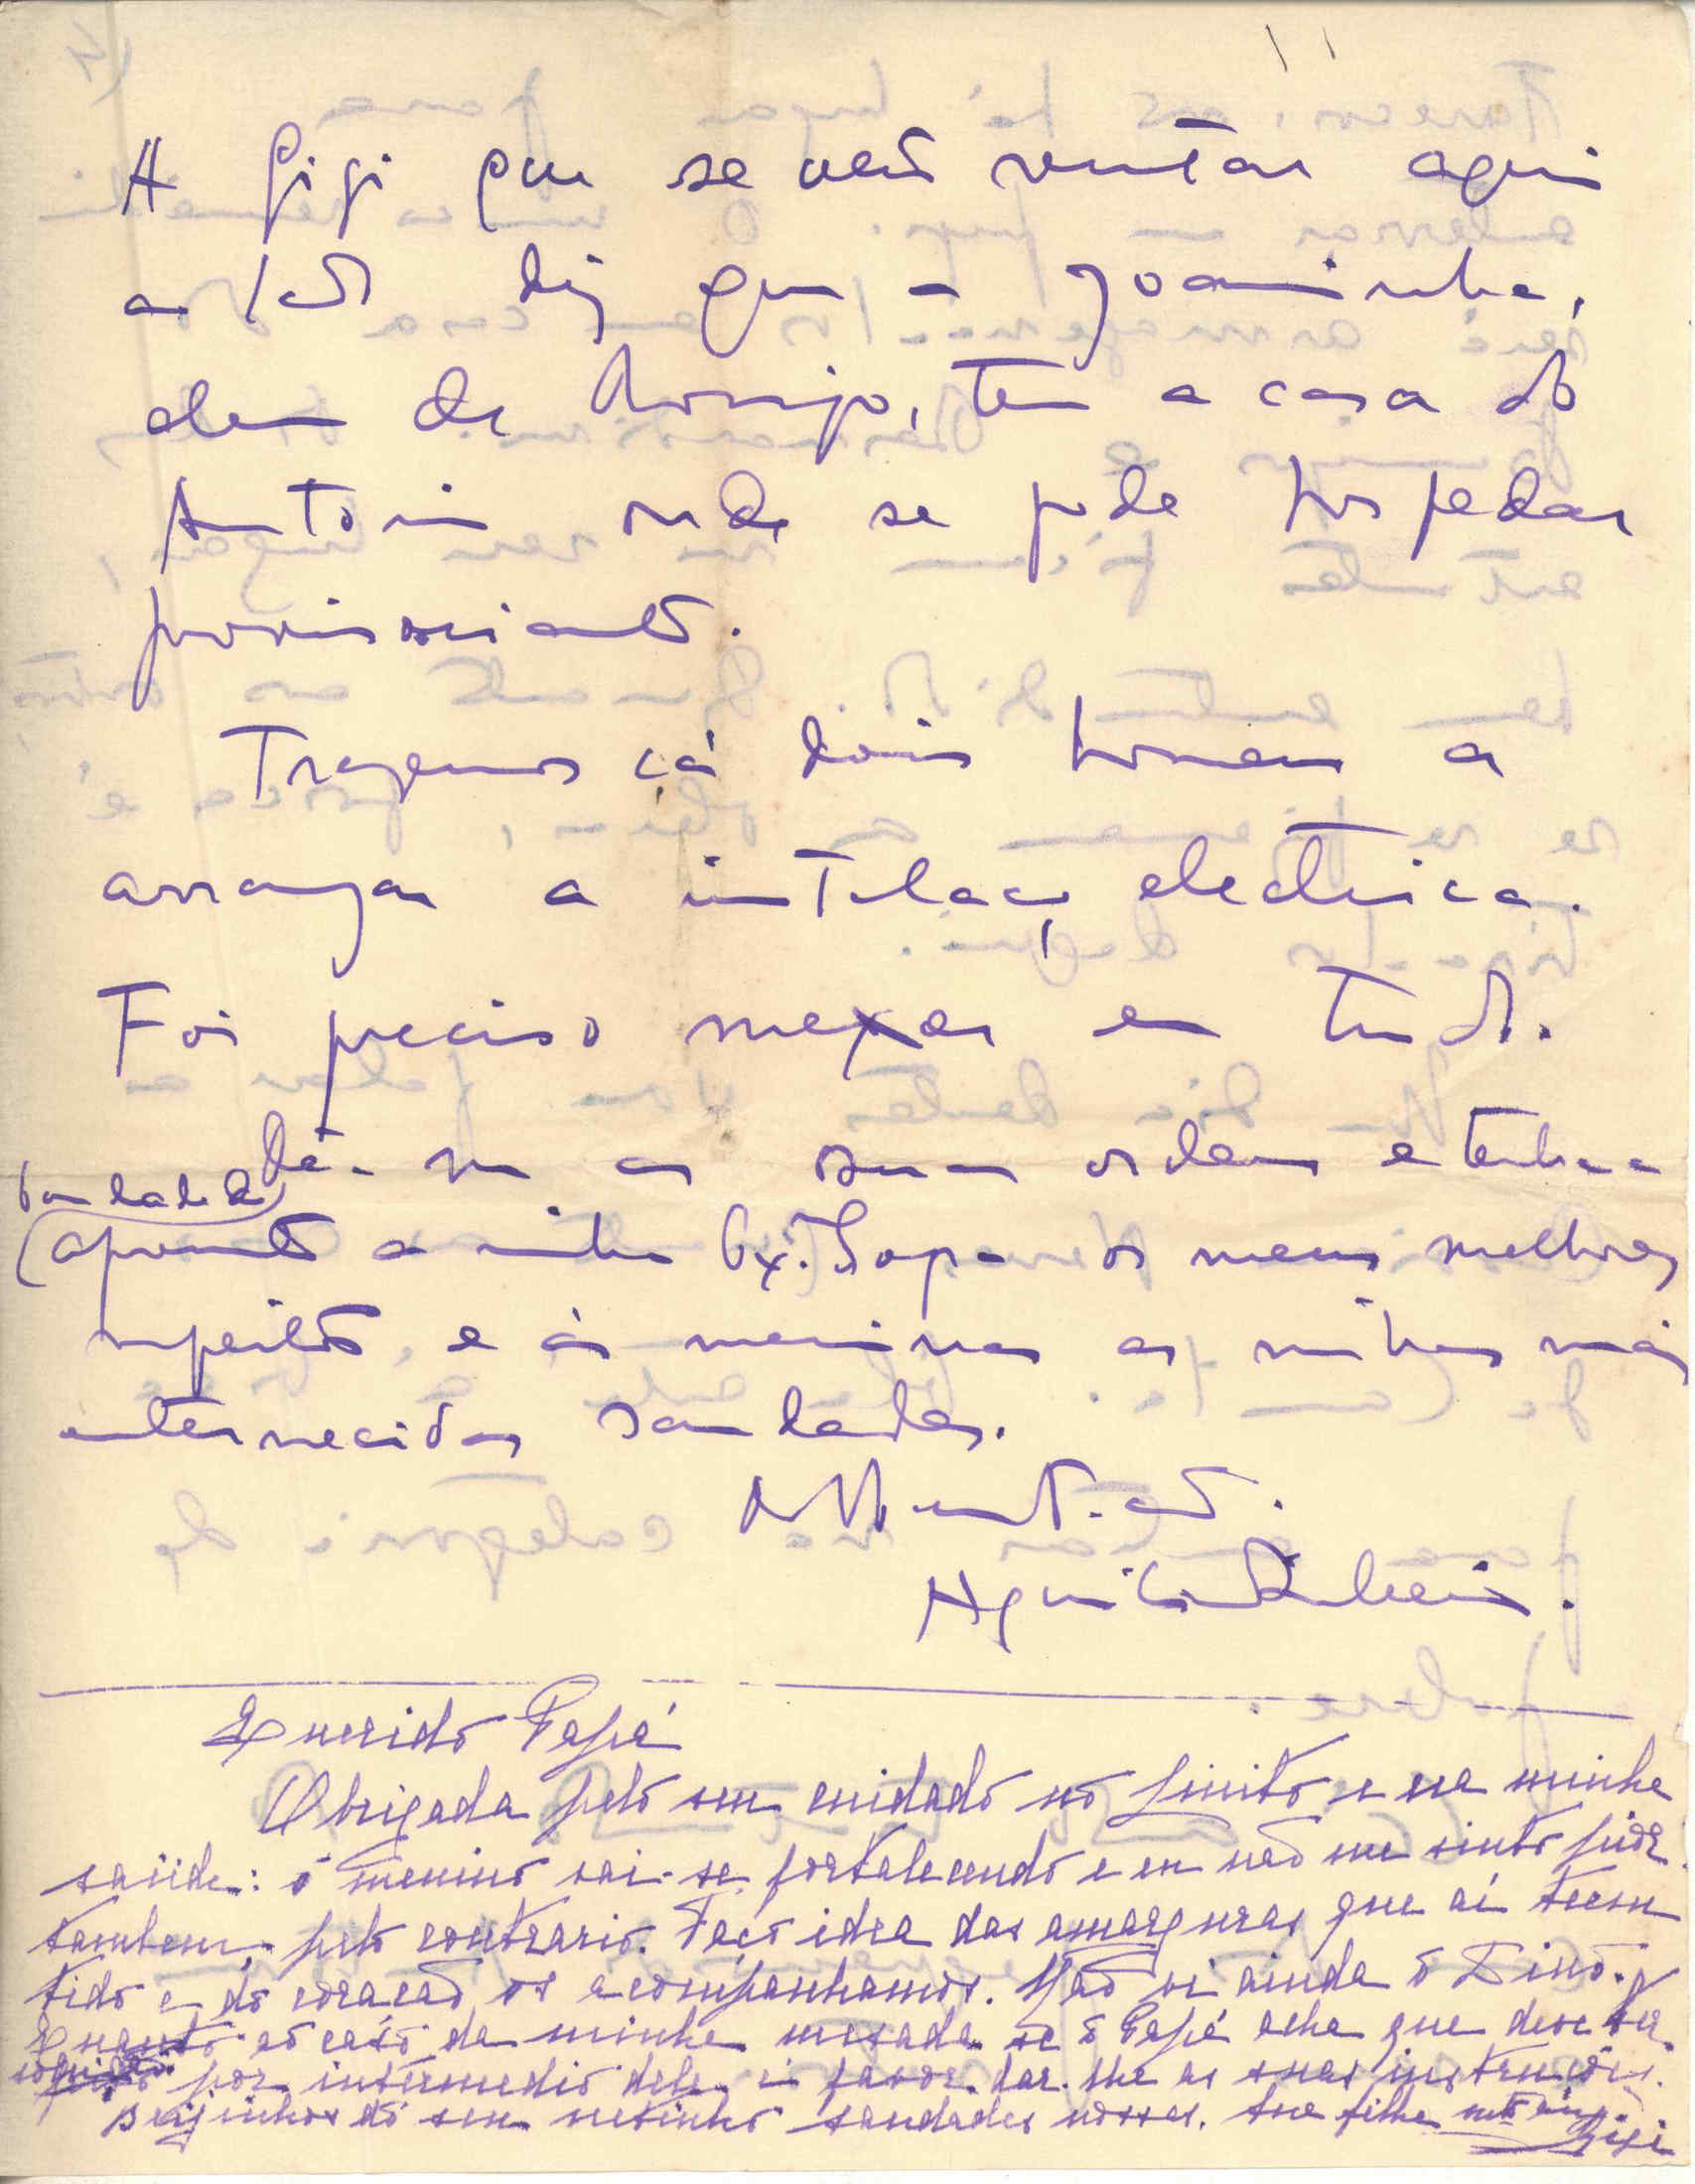 A Gigi que se veio sentar aqui
ao lado diz que a Joaninha,
alem da Arosijo, tem a casa do
Antonio onde se pode hospedar
provisoriamente.
Trazemos cá dois homens a
arranjar a instalação electrica.
Foi preciso mexer em tudo.
Dê-me as suas ordens e tenha a
bondade de
apresente a minha Ex. Sogra os meus melhores
respeitos e ás meninas as minhas mais
enternecidas saudades.
Mto. ato.
Aquilino Ribeiro.
Querido Papá
Obrigada pelo seu cuidado no Linito e na minha
saúde: o menino vai-se fortalecendo e eu não me sinto pior
tambem pelo contrario. Faço idea das amarguras que aí teem
tido e do coração os acompanhamos. Não vi ainda o Dino.
Quanto ao caso da minha mesada se o Papá acha que deve ser
por intermedio dele é favor dar-lhe as suas instruções.
Beijinhos do seu netinho saudades nossas. Sua filha mto amiga
Gigi